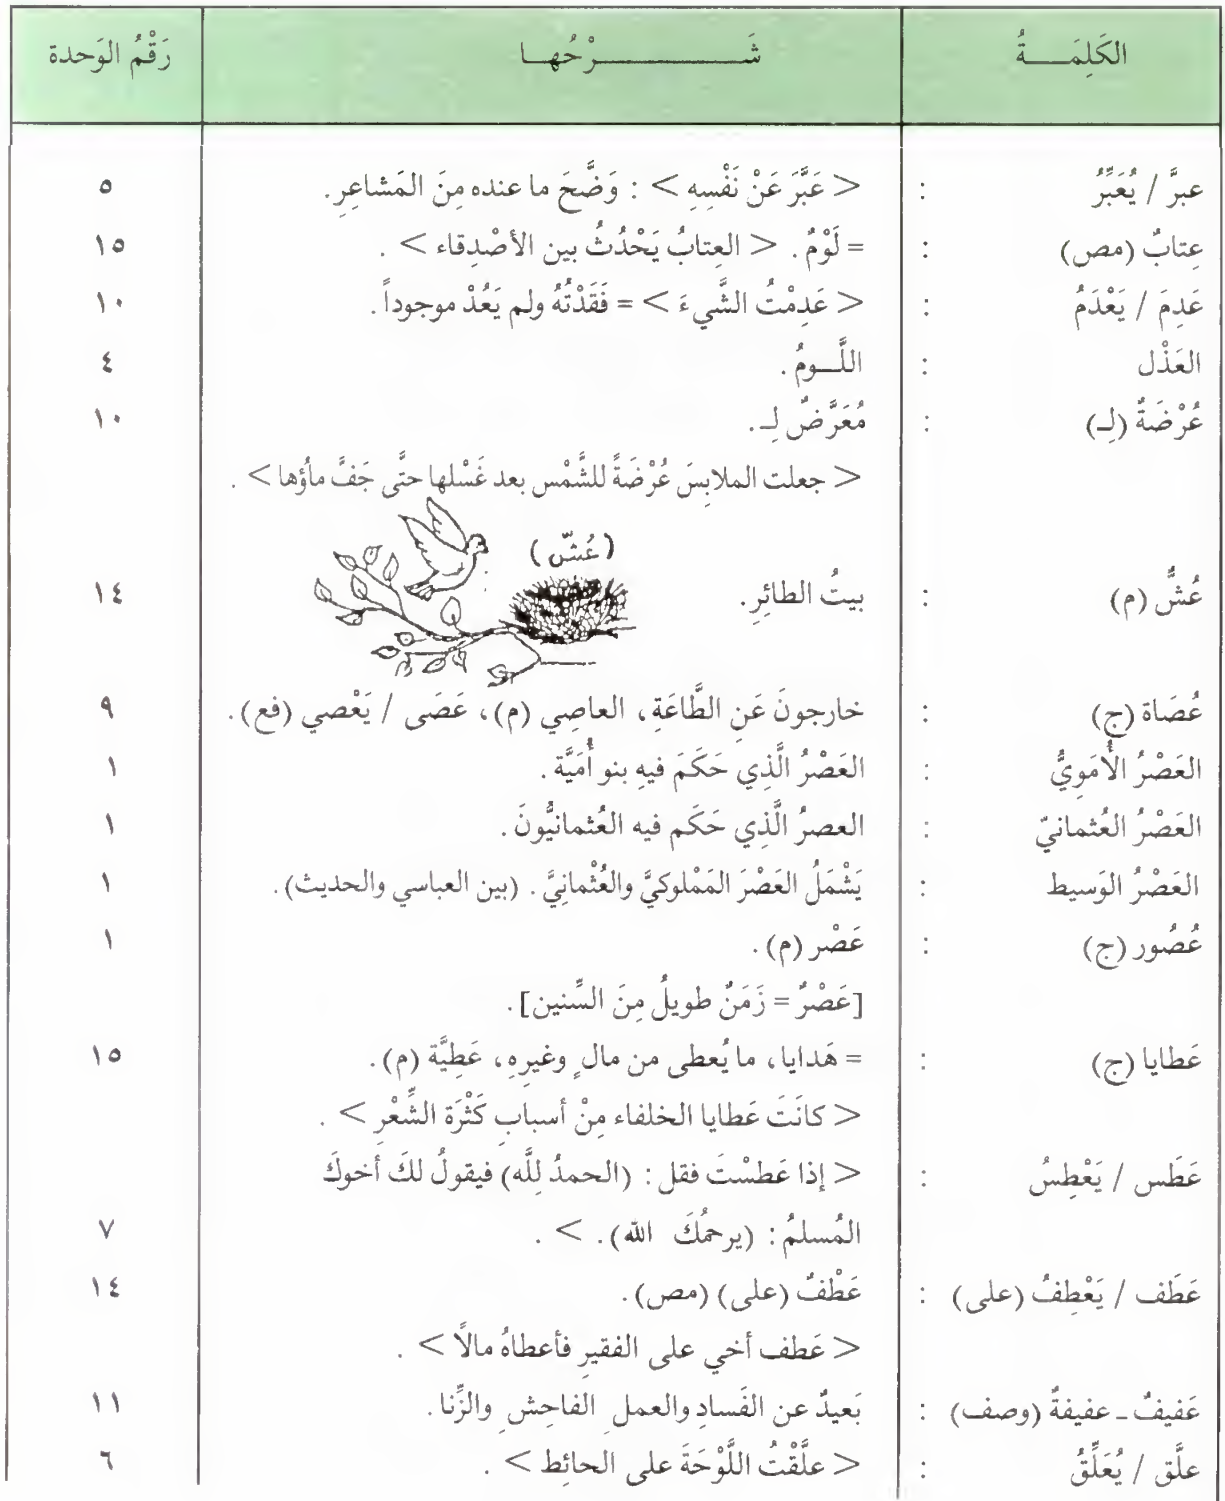 الكَلِمَــــةُ شَــــــــرْحُهــا رَقْمُ الوَحدة
عبرَّ / يُعَبِّرُ : < عَبَّرَ عَنْ نَفْسِهِ > : وَضَّحَ ما عنده مِنَ المَشاعِرِ . ٥
عِتابٌ (مص) : = لَوْمٌ . < العِتابُ يَحْدُثُ بين الأصْدِقاء > . ١٥
عَدِمَ / يَعْدَمُ : < عَدِمْتُ الشَّيءَ > = فَقَدْتُهُ ولم يَعُدْ موجوداً . ١٠
العَذْل : اللَّــومُ . ٤
عُرْضَةٌ (لِـ) : مُعَرَّضٌ لِـ . ١٠
< جعلت الملابِسَ عُرْضَةً للشَّمْس بعد غَسْلها حتَّى جَفَّ ماؤها > .
(عُشّ)
عُشٌّ (م) : بيتُ الطائِرِ . ١٤
عُصَاة (ج) : خارجونَ عَنِ الطَّاعَةِ ، العاصِي (م) ، عَصَى / يَعْصي (فع) . ٩
العَصْرُ الأُمَوِيُّ : العَصْرُ الَّذِي حَكَمَ فيهِ بنو أُمَيَّة . ١
العَصْرُ العُثمانيّ : العصرُ الَّذِي حَكَم فيه العُثمانيُّونَ . ١
العَصْرُ الوَسيط : يَشْمَلُ العَصْرَ المَمْلوكيَّ والعُثْمانِيَّ . (بين العباسي والحديث) . ١
عُصُور (ج) : عَصْر (م) . ١
[عَصْرٌ = زَمَنٌ طويلٌ مِنَ السِّنين] .
عَطايا (ج) : = هَدايا ، ما يُعطى من مالٍ وغيرِهِ ، عَطِيَّة (م) . ١٥
< كانَتَ عَطايا الخلفاء مِنْ أسبابِ كَثْرَة الشِّعْرِ > .
عَطَس / يَعْطِسُ : < إذا عَطسْتَ فقل : (الحمدُ لِلَّه) فيقولُ لكَ أخوكَ
المُسلمُ : (يرحمُكَ الله) . > . ٧
عَطَف / يَعْطِفُ (على) : عَطْفٌ (على) (مص) . ١٤
< عَطف أخي على الفقيرِ فأعطاهُ مالًا > .
عَفيفٌ ـ عفيفةٌ (وصف) : بَعيدٌ عن الفَسادِ والعملِ الفاحِشِ والزِّنا . ١١
علَّق / يُعَلِّقُ : < علَّقْتُ اللَّوْحَةَ على الحائِط > . ٦